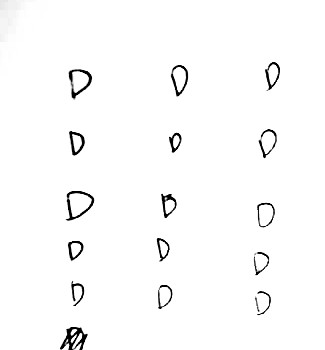 D D D
D D D
D D D
D D D
D D D